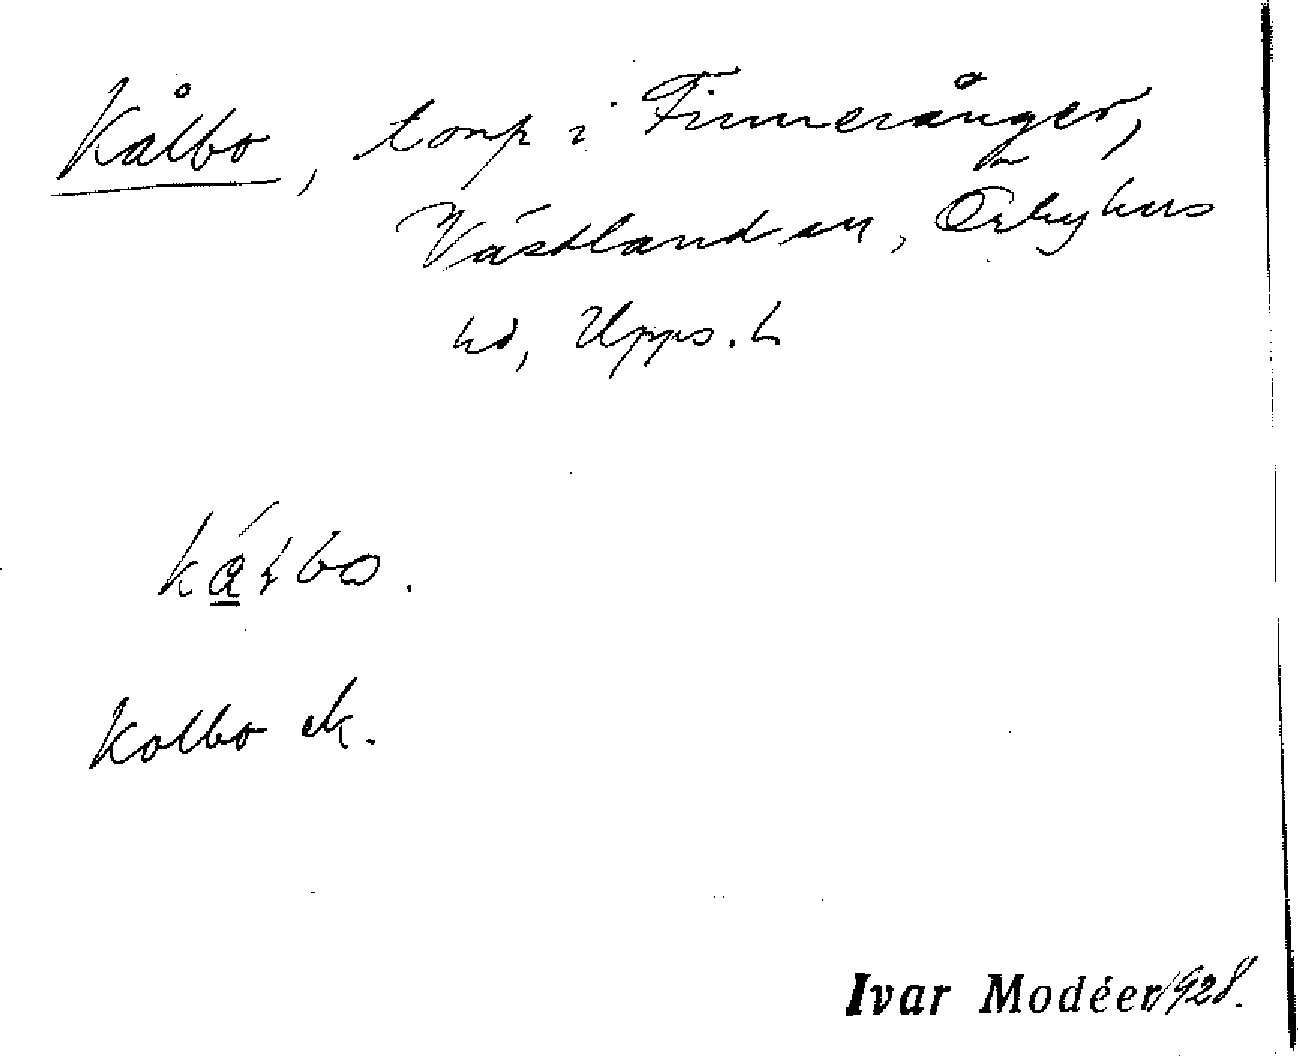 Kålbo, tomp i Finneränger,
Västland sn, Örbyhus
hd, Upps. l.
Kolbo ek.
Ivar Modéer 1928.